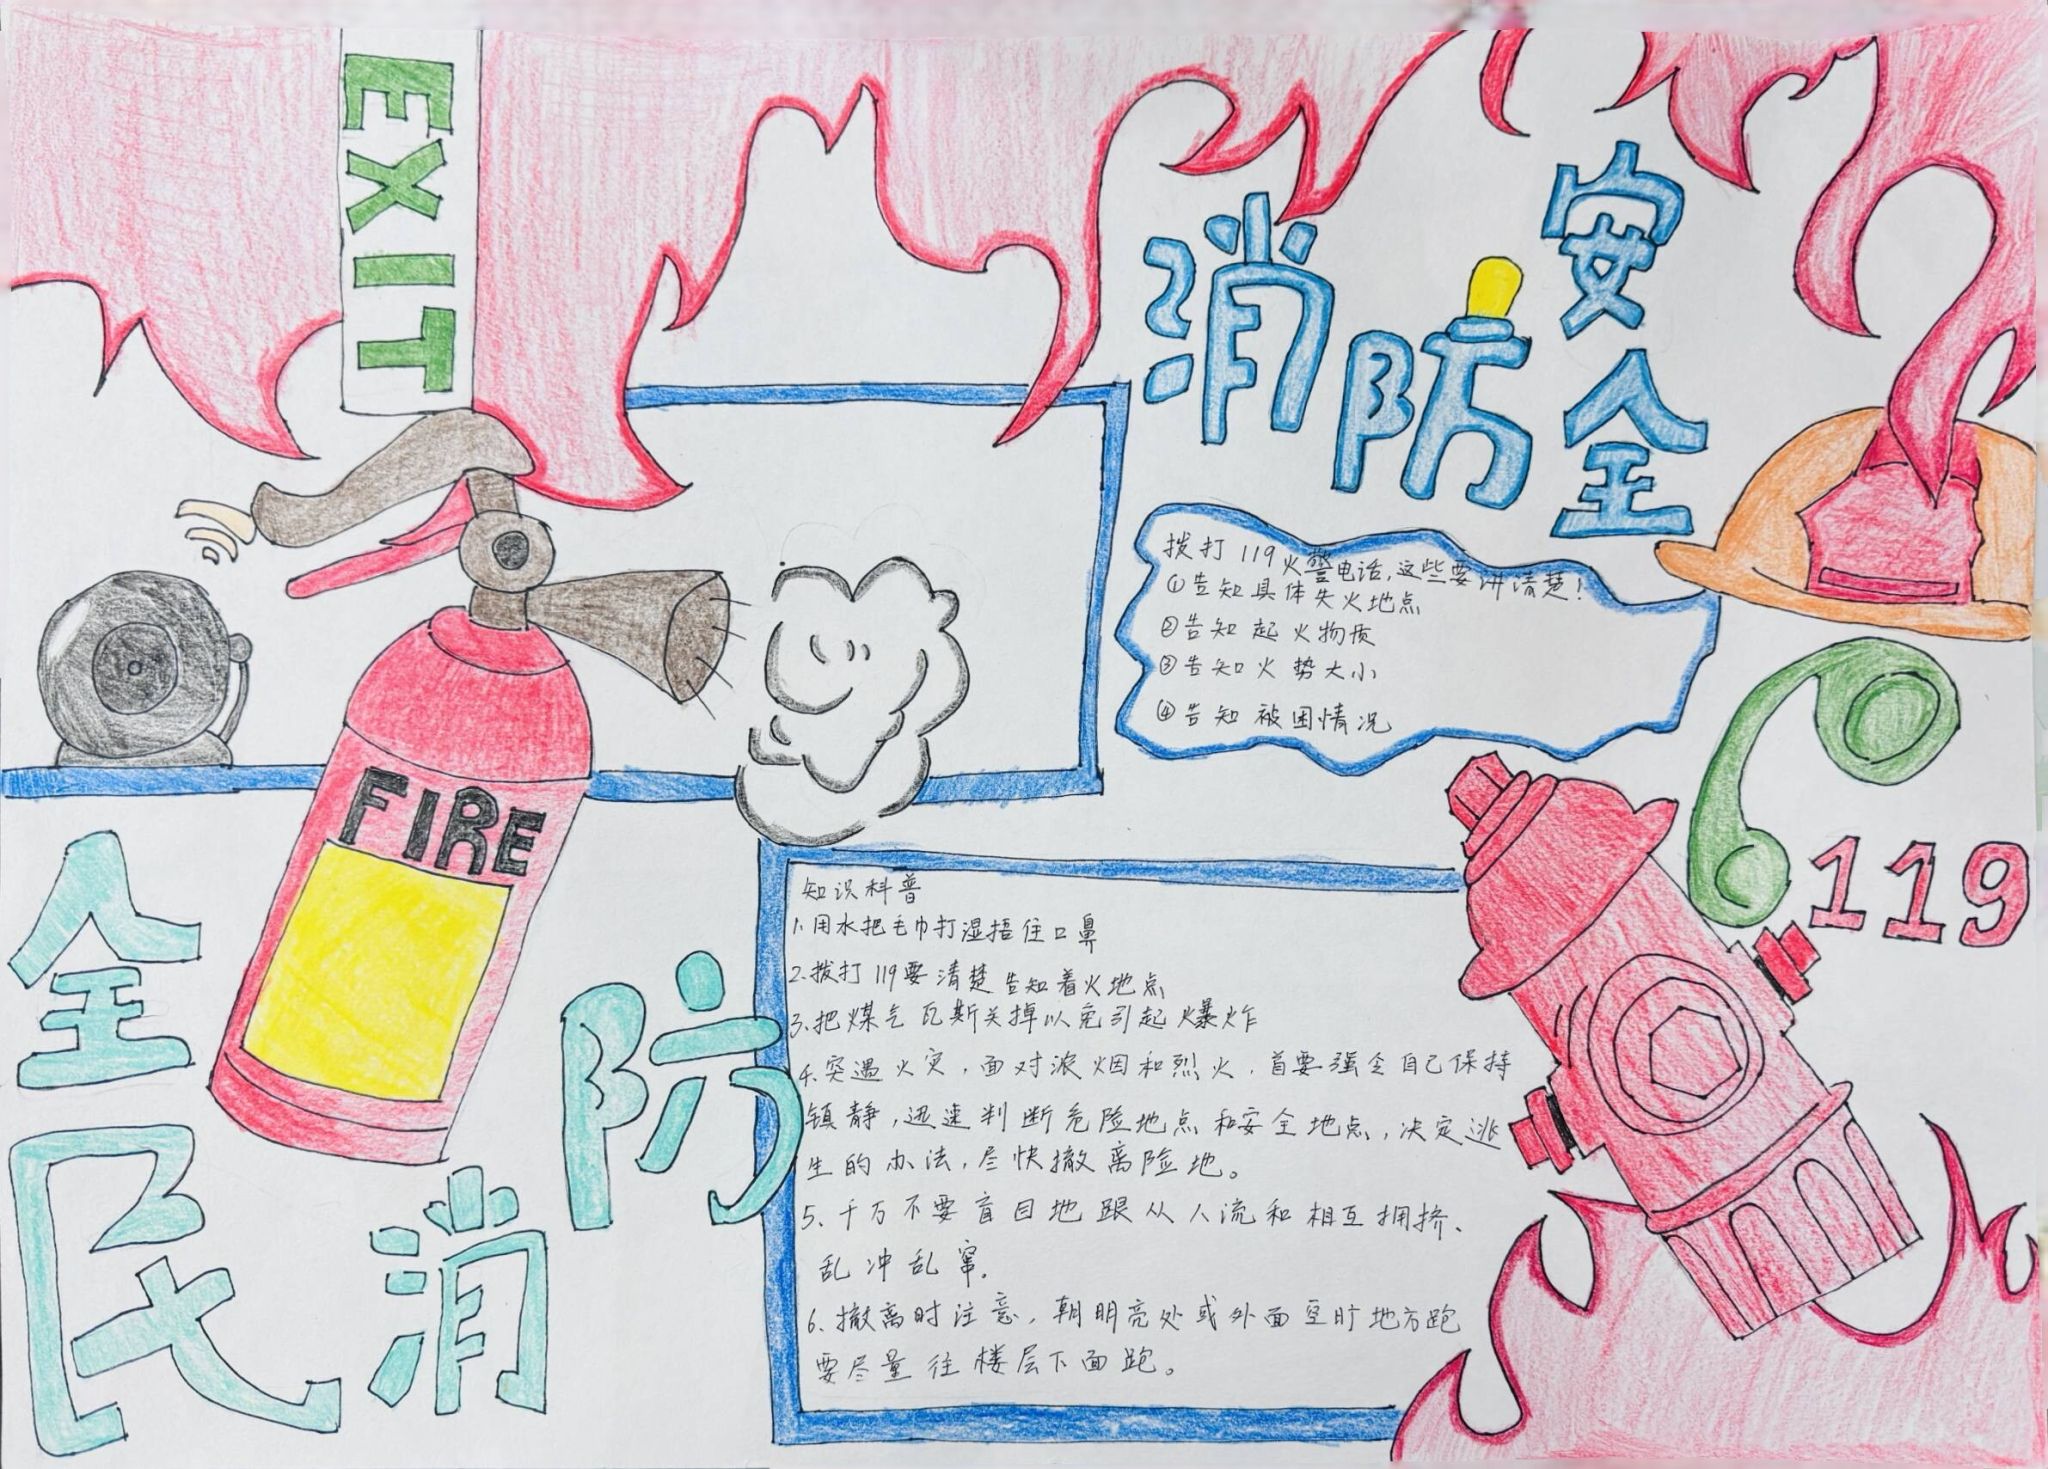 EXIT
消防
安全
拨打119火警电话,这些要讲清楚!
①告知具体失火地点
②告知起火物质
③告知火势大小
④告知被困情况
119
FIRE
全民消防
知识科普
1.用水把毛巾打湿捂住口鼻
2.拨打119要清楚告知着火地点
3.把煤气瓦斯关掉以免引起爆炸
4.突遇火灾,面对浓烟和烈火,首要强令自己保持
镇静,迅速判断危险地点和安全地点,决定逃
生的办法,尽快撤离险地。
5、千万不要盲目地跟从人流和相互拥挤、
乱冲乱窜.
6、撤离时注意,朝明亮处或外面空旷地方跑
要尽量往楼层下面跑。